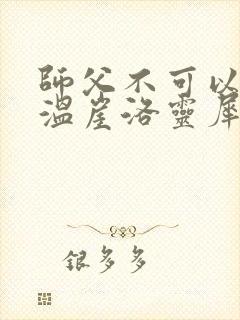 師父不可以
溫崖洛靈犀
銀多多